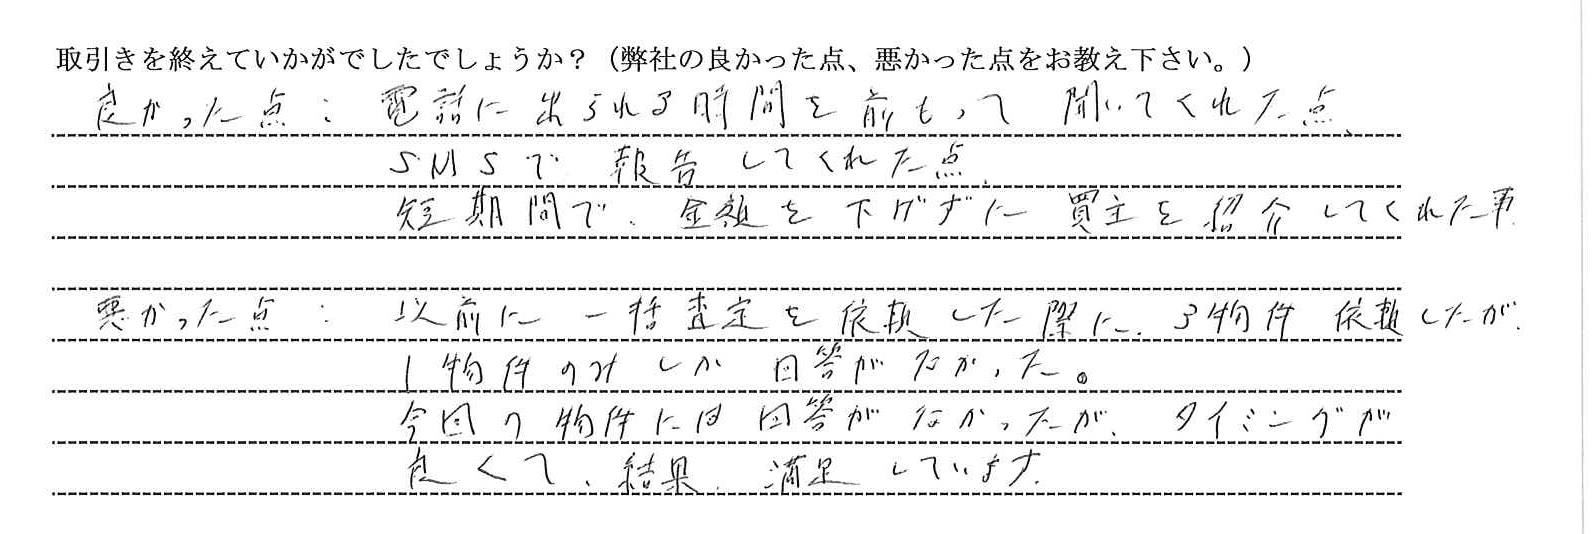 取引きを終えていかがでしたでしょうか？（弊社の良かった点、悪かった点をお教え下さい。）
良かった点： 電話に出られる時間を前もって 聞いてくれた点、
SMSで 報告してくれた点、
短期間で、金額を下げずに買主を紹介してくれた事、
悪かった点： 以前に一括査定を依頼した際に、3物件 依頼したが、
1物件のみしか 回答がなかった。
今回の物件には回答がなかったが、タイミングが
良くて、結果、満足しています。